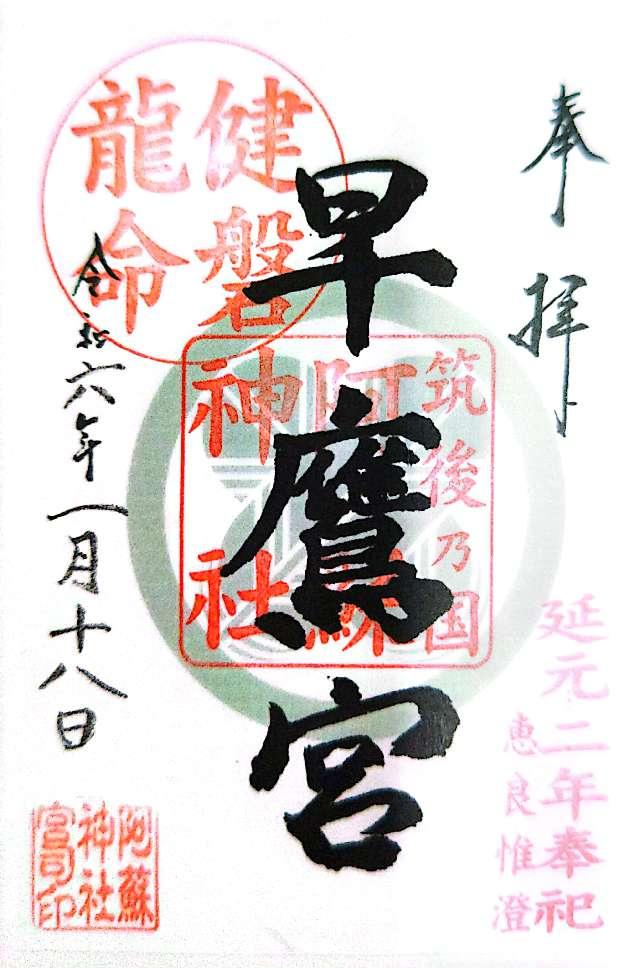 奉拝
延元二年奉祀
恵良惟澄
早鷹宮
筑後乃国
阿蘇
神社
健磐
龍命
令和六年一月十八日
阿蘇
神社
宮司印